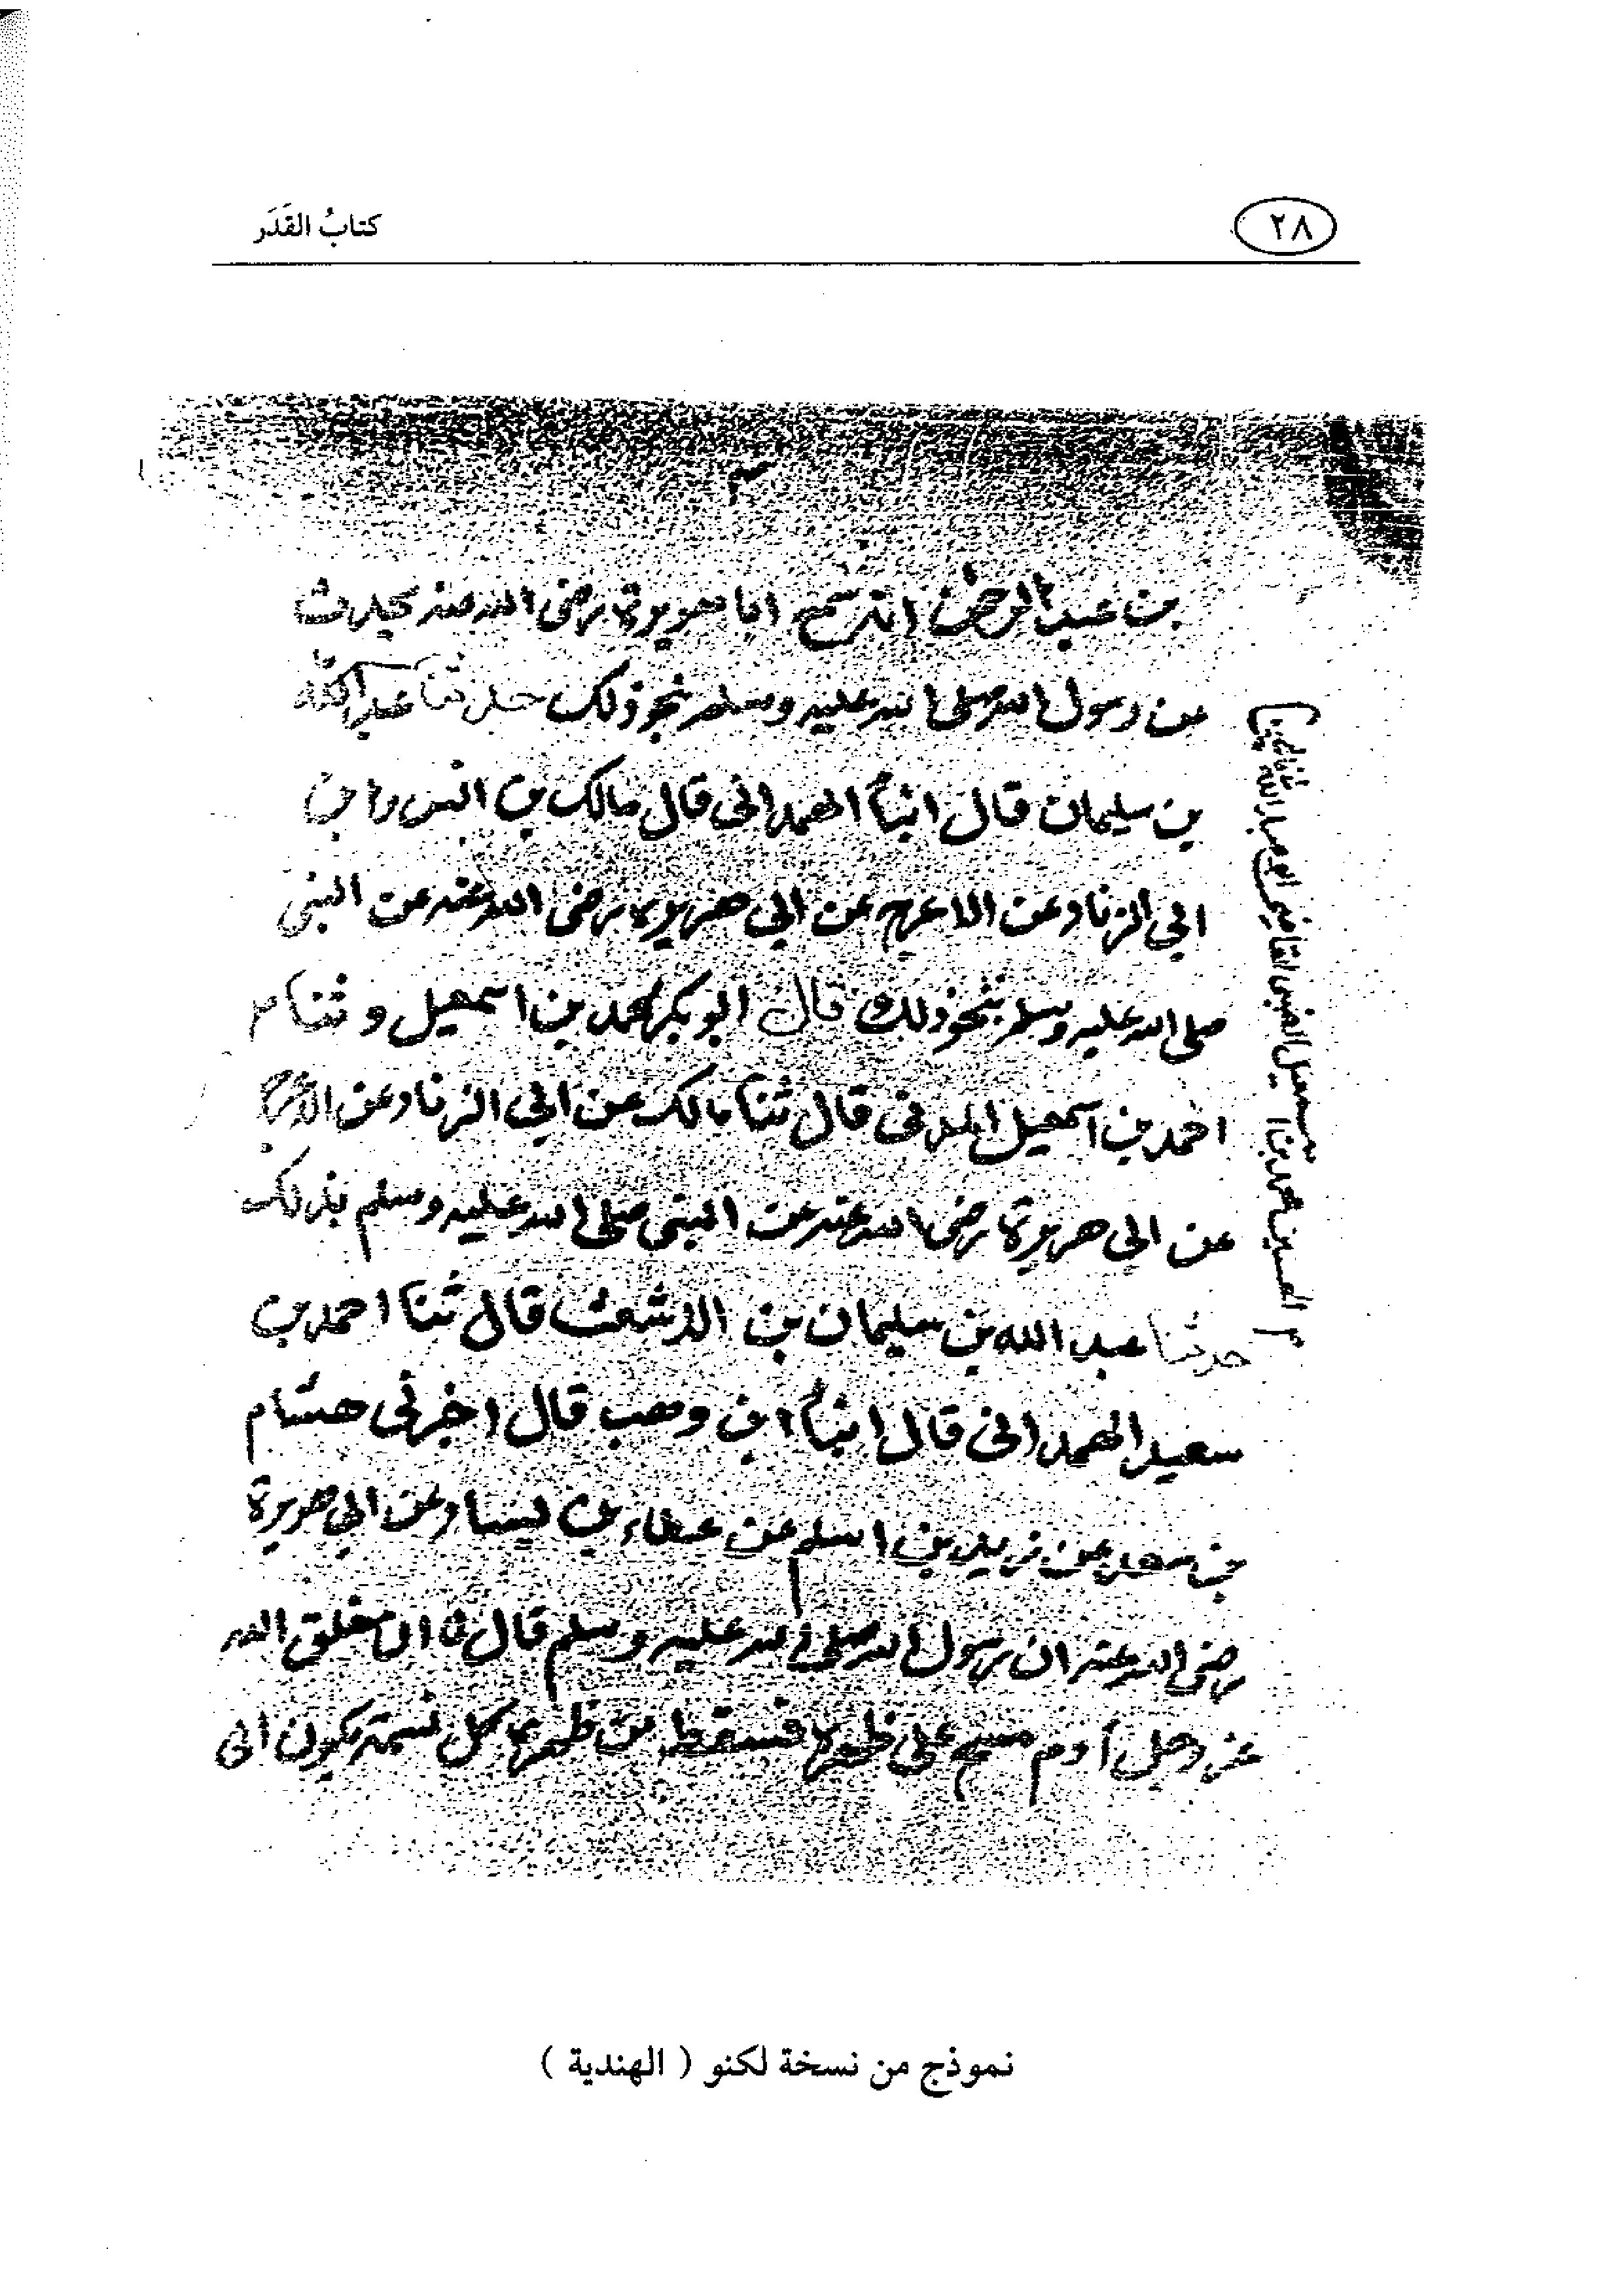 ٢٨
كتابُ القَدَر
٣
بن عبد الرحمن انه سمع ابا هريرة رضى الله عنه يحدث
عن رسول الله صلى الله عليه وسلم نحو ذلك حدثنا عبد الله
بن سليمان قال انبأ الهمدانى قال مالك بن انس
ابي الزناد عن الاعرج عن ابي هريرة رضى الله عنه عن النبى
صلى الله عليه وسلم نحو ذلك قال ابو بكر محمد بن اسمعيل وثنا
احمد بن اسمعيل المدنى قال ثنا مالك عن ابي الزناد عن الاعرج
عن ابي هريرة رضى الله عنه عن النبى صلى الله عليه وسلم بذلك
حدثنا عبد الله بن سليمان بن الاشعث قال ثنا احمد بن
سعيد الهمدانى قال انبأ ابن وهب قال اخبرنى هشام
بن سعد عن زيد بن اسلم عن عطاء بن يسار عن ابي هريرة
رضى الله عنه ان رسول الله صلى الله عليه وسلم قال لما ان خلق الله
عز وجل آدم مسح على ظهره فسقط من ظهره كل نسمة تكون الى
بن محمد بن اسمعيل الضبى القاضى ابو عبد الله
نموذج من نسخة لكنو ( الهندية )